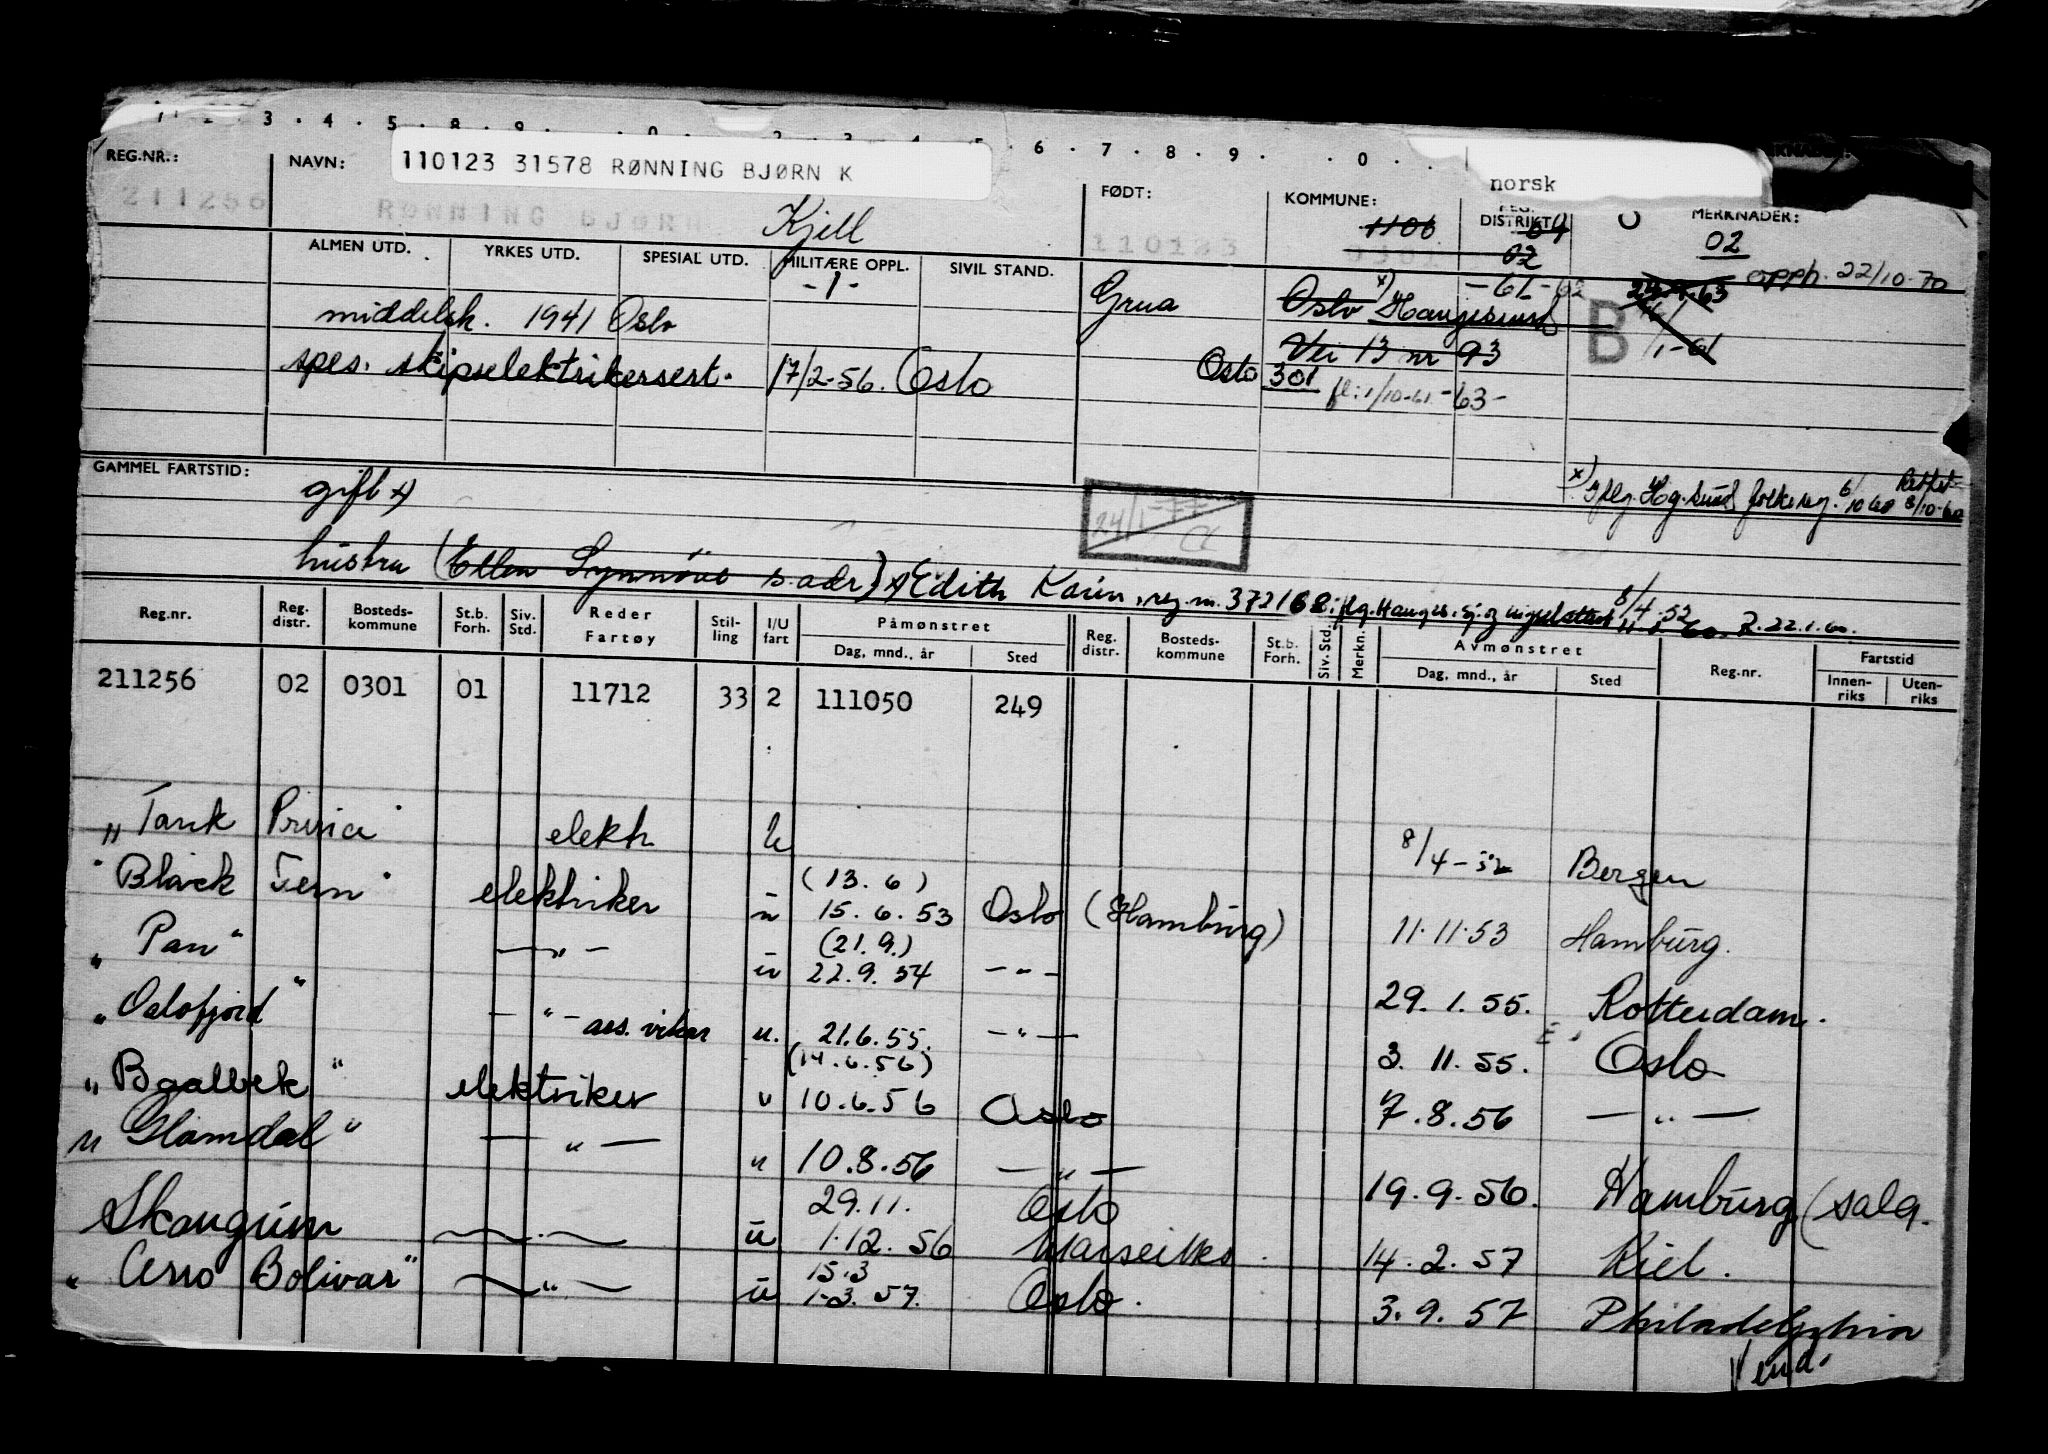 REG.NR.: NAVN: 110123 31578 RØNNING BJØRN K FØDT: KOMMUNE: DISTRIKT norsk MERKNADER:
211256 RØNNING BJØRN Kjell 110123 1106 64 02
02
ALMEN UTD. YRKES UTD. SPESIAL UTD. MILITÆRE OPPL. SIVIL STAND.
-1- -61-62 opph. 22/10-70
middelsk. 1941 Oslo Grua Oslo x) Haugesund B
Vei 13 nr 93
spes. skipselektrikersert. 17/2-56. Oslo Oslo 301
fl: 1/10-61 -63-
GAMMEL FARTSTID: gift x) x) iflg. Hog.sund folkereg. 6/10 60 Rettet 8/10-60
24/1-77
hustru (Ellen Synnöve s.adr) x) Edith Karin, reg.nr. 372168
Reg.nr. Reg. distr. Bosteds- kommune St.b. Forh. Siv. Std. Reder Fartøy Stil- ling I/U fart Påmønstret Dag, mnd., år Sted Reg. distr. Bosteds- kommune St.b. Forh. Siv. Std. Merkn. Avmønstret Dag, mnd., år Sted Reg.nr. Fartstid Innen- riks Uten- riks
211256 02 0301 01 11712 33 2 111050 249
"Tank Princi" elektr. u 8/4-52 Bergen
"Black Fern" elektriker u (13.6) 15.6.53 Oslo (Hamburg) 11.11.53 Hamburg.
"Pan" — " — u (21.9.) 22.9.54 — " — 29.1.55. Rotterdam.
"Oslofjord" — " — ass. vikar u. 21.6.55. — " — 3.11.55. Oslo
"Baalbek" elektriker u (14.6.56) 10.6.56 Oslo 7.8.56 — " —
"Glomdal" — " — u 10.8.56 — " — 19.9.56. Hamburg (salg.
Skaugum — " — u 29.11. 1.12.56 Oslo Marseilles. 14.2.57 Kiel.
"Cerro Bolivar" — " — u 15.3 1-3.57. Oslo. 3.9.57 Philadelphia
Vend.